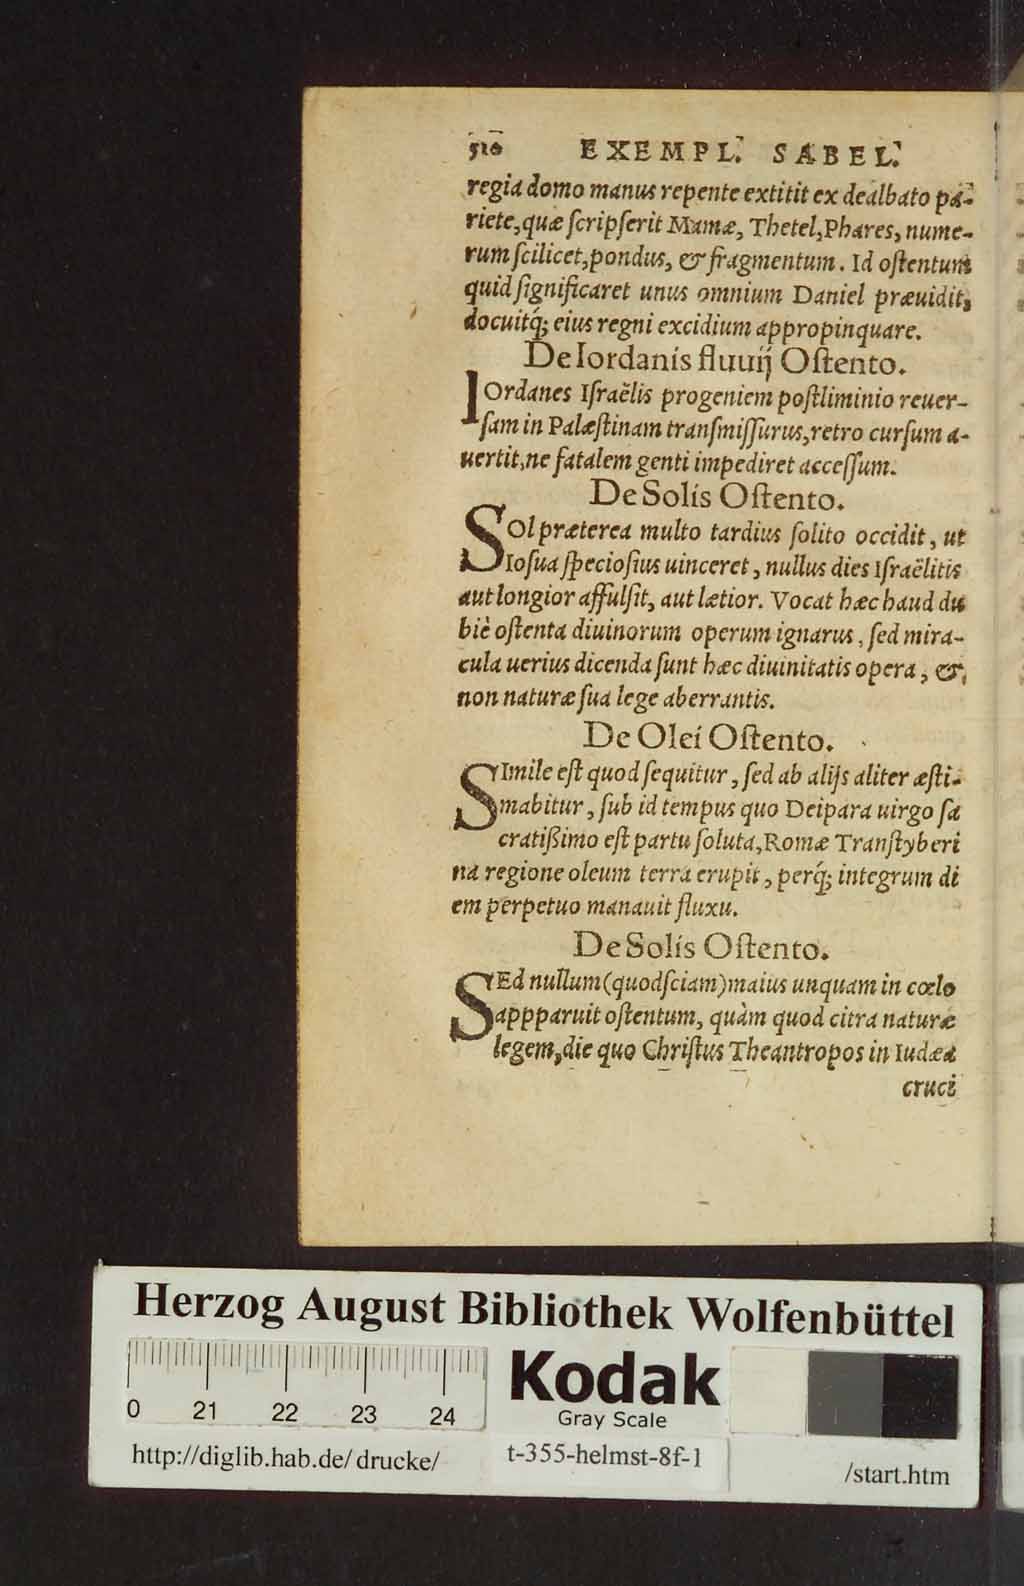 510 EXEMPL. SABEL.
regia domo manus repente extitit ex dealbato pa-
riete, quæ ſcripſerit Mamæ, Thetel, Phares, nume-
rum ſcilicet, pondus, & fragmentum. Id oſtentum
quid ſignificaret unus omnium Daniel præuidit,
docuitq́; eius regni excidium appropinquare.
De Iordanis fluuij Oſtento.
IOrdanes Iſraëlis progeniem poſtliminio reuer-
ſam in Palæſtinam tranſmiſſurus, retro curſum a-
uertit, ne fatalem genti impediret acceſſum.
De Solis Oſtento.
SOl præterea multo tardius ſolito occidit, ut
Ioſua ſpecioſius uinceret, nullus dies Iſraëlitis
aut longior affulſit, aut lætior. Vocat hæc haud du
biè oſtenta diuinorum operum ignarus, ſed mira-
cula uerius dicenda ſunt hæc diuinitatis opera, &
non naturæ ſua lege aberrantis.
De Olei Oſtento.
SImile eſt quod ſequitur, ſed ab alijs aliter æſti-
mabitur, ſub id tempus quo Deipara uirgo ſa
cratißimo eſt partu ſoluta, Romæ Tranſtyberi
na regione oleum terra erupit, perq́; integrum di
em perpetuo manauit fluxu.
De Solis Oſtento.
SEd nullum (quod ſciam) maius unquam in cœlo
appparuit oſtentum, quàm quod citra naturæ
legem, die quo Chriſtus Theantropos in Iudæa
cruci
Herzog August Bibliothek Wolfenbüttel
0 21 22 23 24
Kodak
Gray Scale
http://diglib.hab.de/drucke/ t-355-helmst-8f-1 /start.htm